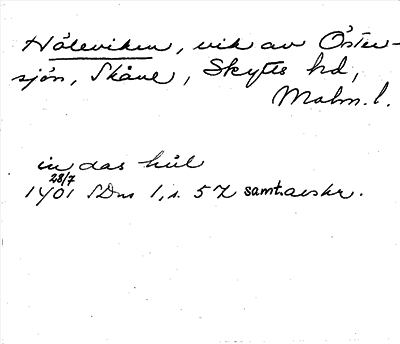 Höleviken, vik av Öster-
sjön, Skåne, Skytts hd,
Malm. l.
in das hül
28/7
1401 SDns 1, s. 57 samt. avskr.